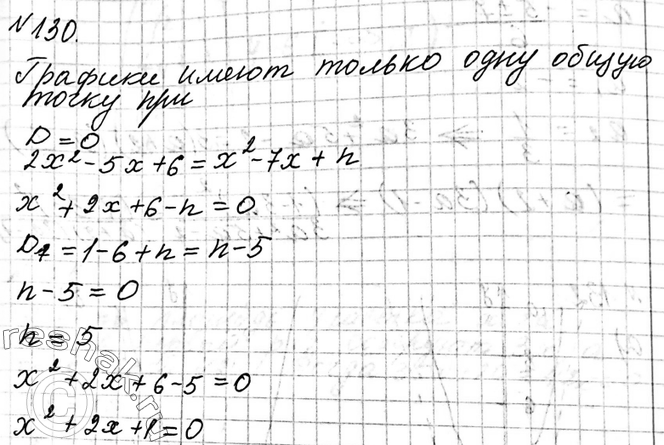 №130.
Графики имеют только одну общую
точку при
D = 0
2x² - 5x + 6 = x² - 7x + n
x² + 2x + 6 - n = 0.
D₁ = 1 - 6 + n = n - 5
n - 5 = 0
n = 5
x² + 2x + 6 - 5 = 0
x² + 2x + 1 = 0
reshak.ru